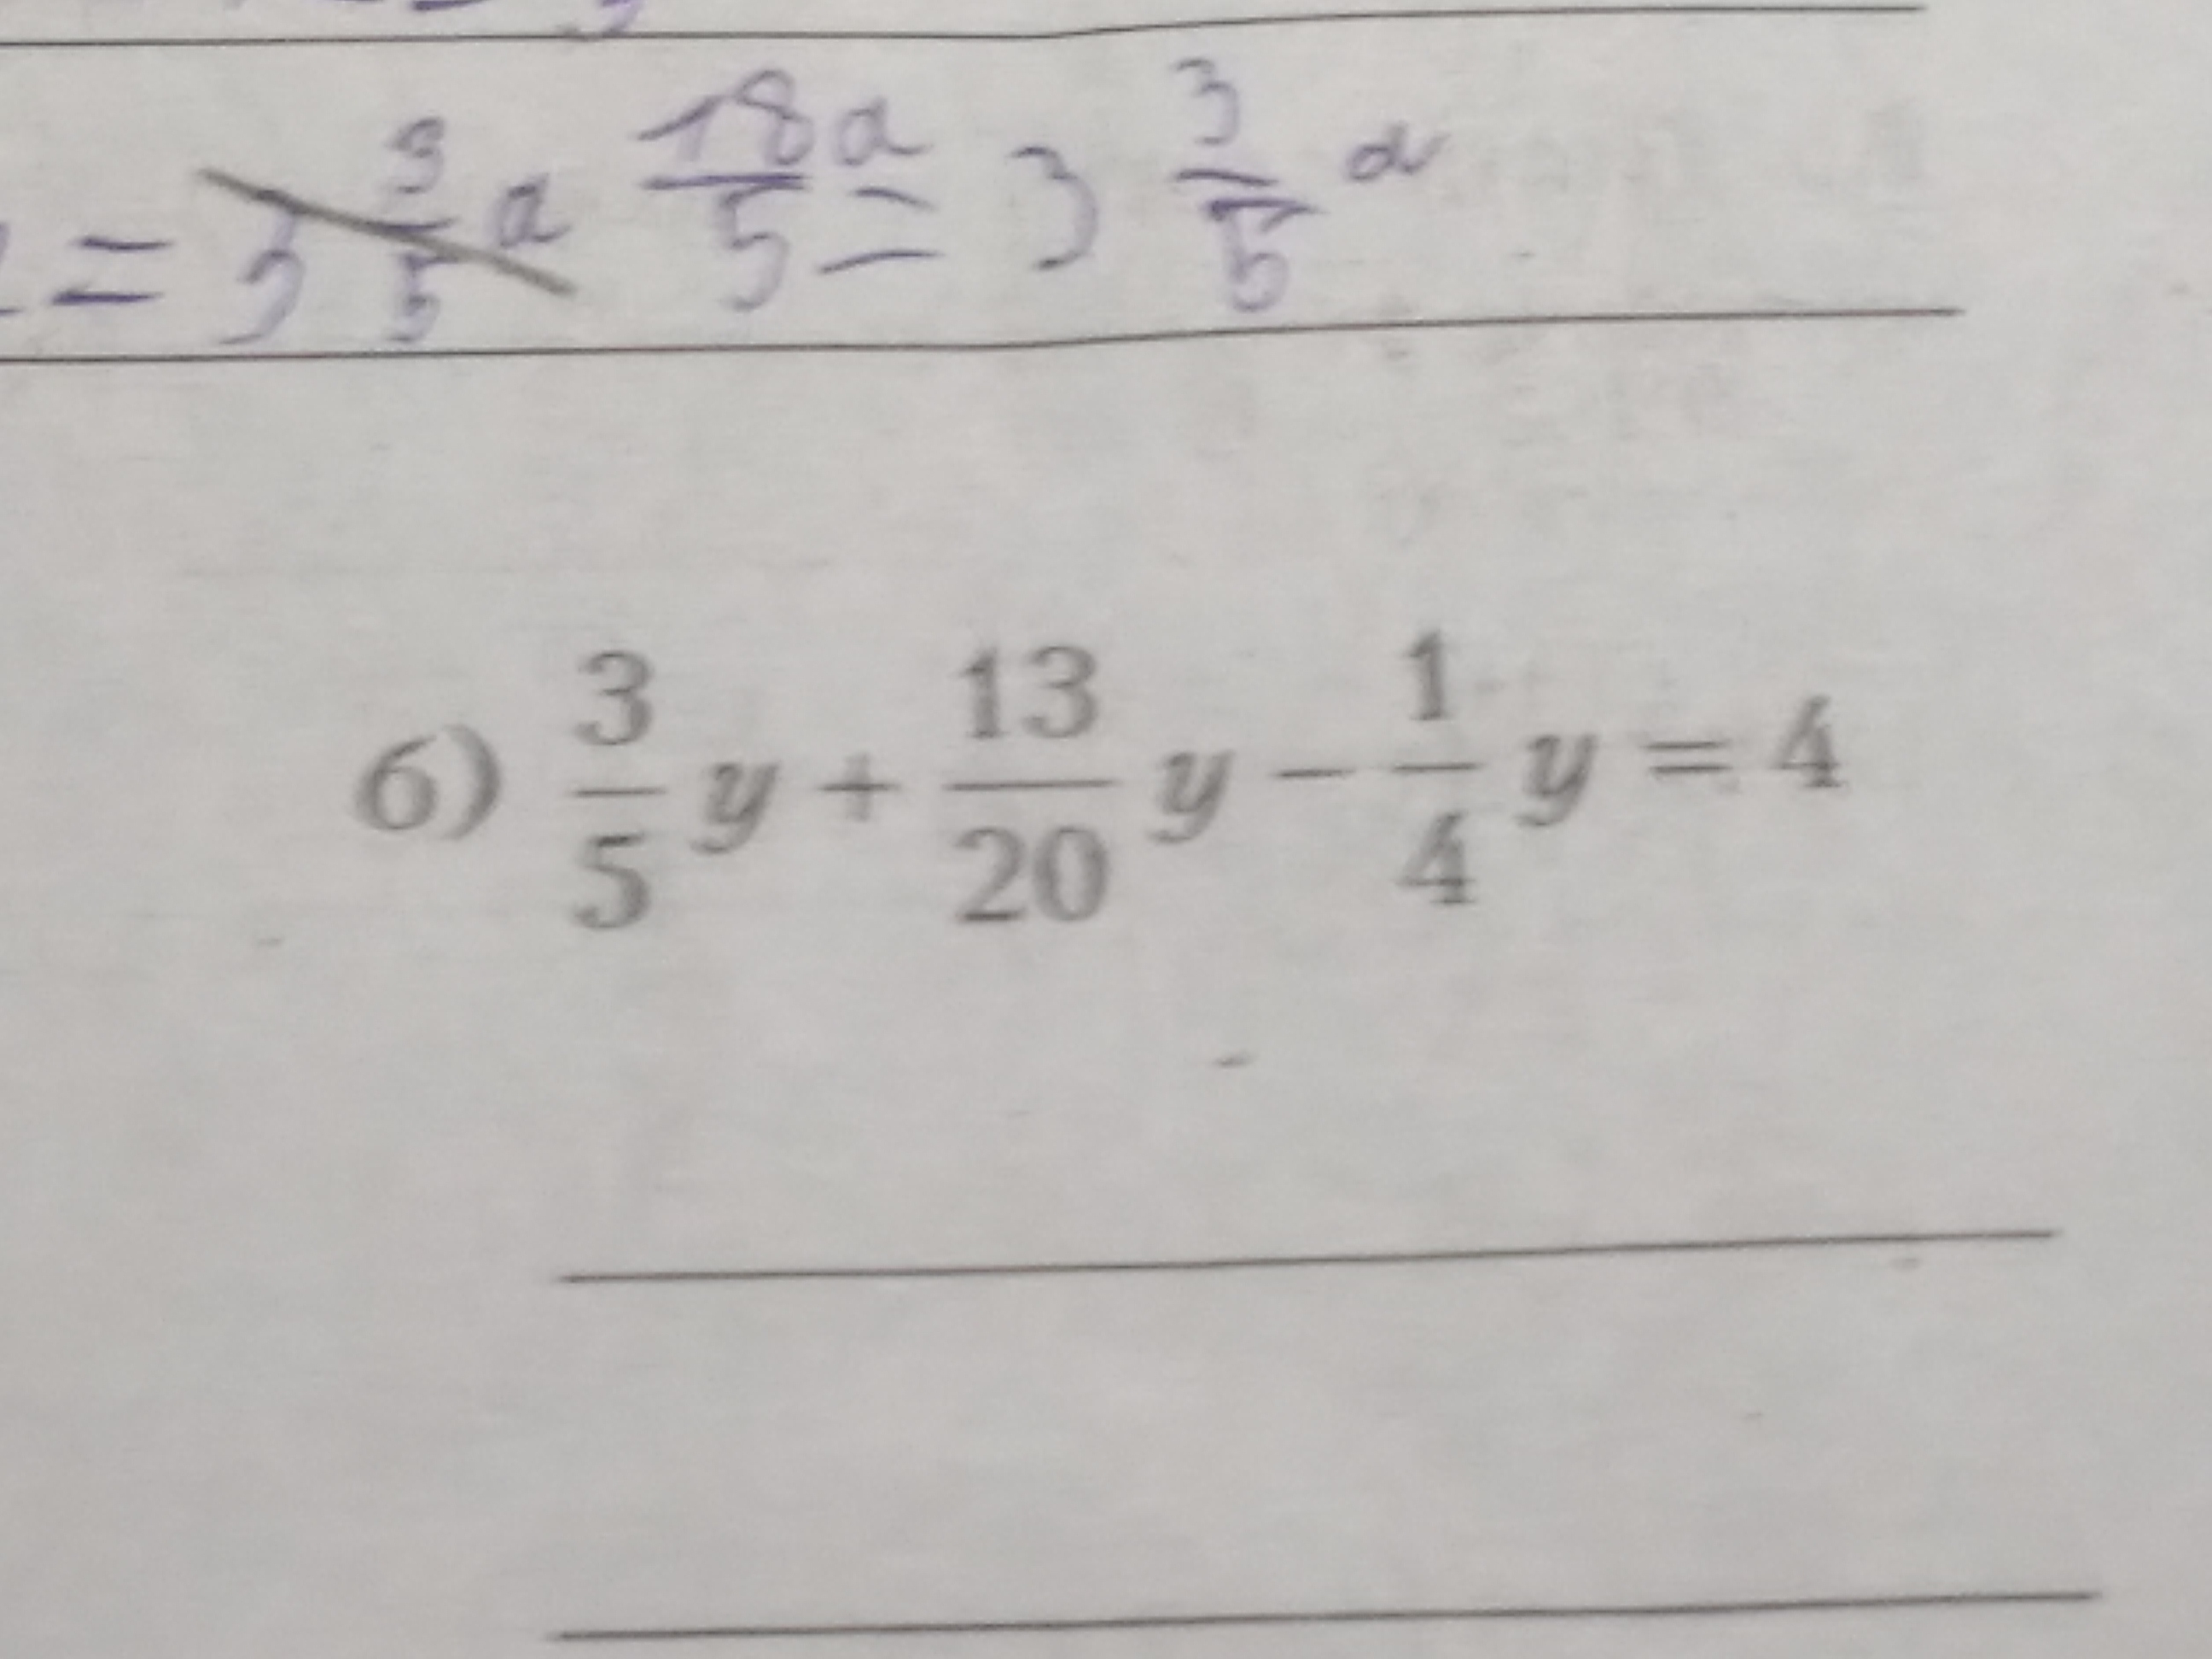 = 3 3/5 a 18a/5 = 3 3/5 a
6) 3/5 y + 13/20 y - 1/4 y = 4